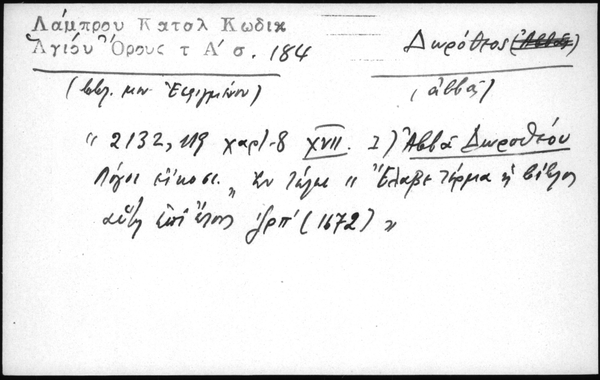 Λάμπρου Κατολ Κωδικ
Ἁγίου Ὄρους τ Α' σ. 184
Δωρόθεος (Ἀββᾶ)
(βιβλ. μον. Ἐσφιγμένου)
(ἀββᾶς)
"2132, 119 χαρτ-8 XVII. 1) Ἀββᾶ Δωροθέου
Λόγοι εἴκοσι." Ἐν τέλει "Ἔλαβε τέρμα ἡ βίβλος
αὕτη ἐπὶ ἔτους ͵ζρπ' (1672)"